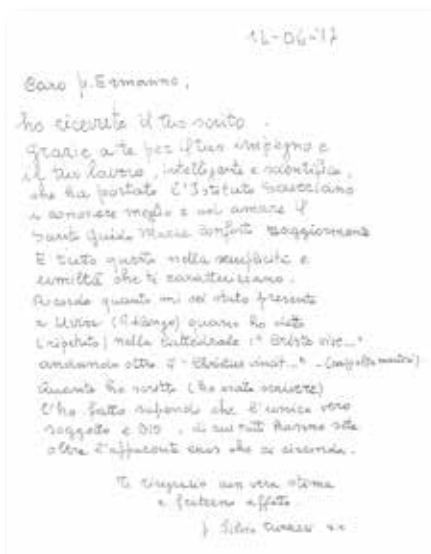 16-06-'17
Caro p. Ermanno,
ho ricevuto il tuo scritto.
Grazie a te per il tuo impegno e
il tuo lavoro, intelligente e scientifico,
che ha portato l'Istituto Saveriano
a conoscere meglio e noi amare il
Santo Guido Maria Conforti maggiormente
E tutto questo nella semplicità e
umiltà che ti caratterizzano.
Ricordo quanto mi sei stato presente
a Uvira quando ho
(ripetuto) nella Cattedrale: " Cristo vive..."
andando oltre il "Christus vincit..."
Quanto ho scritto (ho osato scrivere)
l'ho fatto sapendo che l'unico vero
soggetto è DIO, di cui tutti hanno sete
oltre l'apparente che ci circonda.
Ti ringrazio con vera stima
e fraterno affetto.
p. Silvio Turazzi